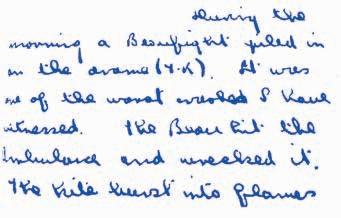 During the
morning a Beaufighter piled in
on the drome (T.K). It was
one of the worst crashes I have
witnessed. The Beau hit the
Ambulance and wrecked it.
The kite burst into flames